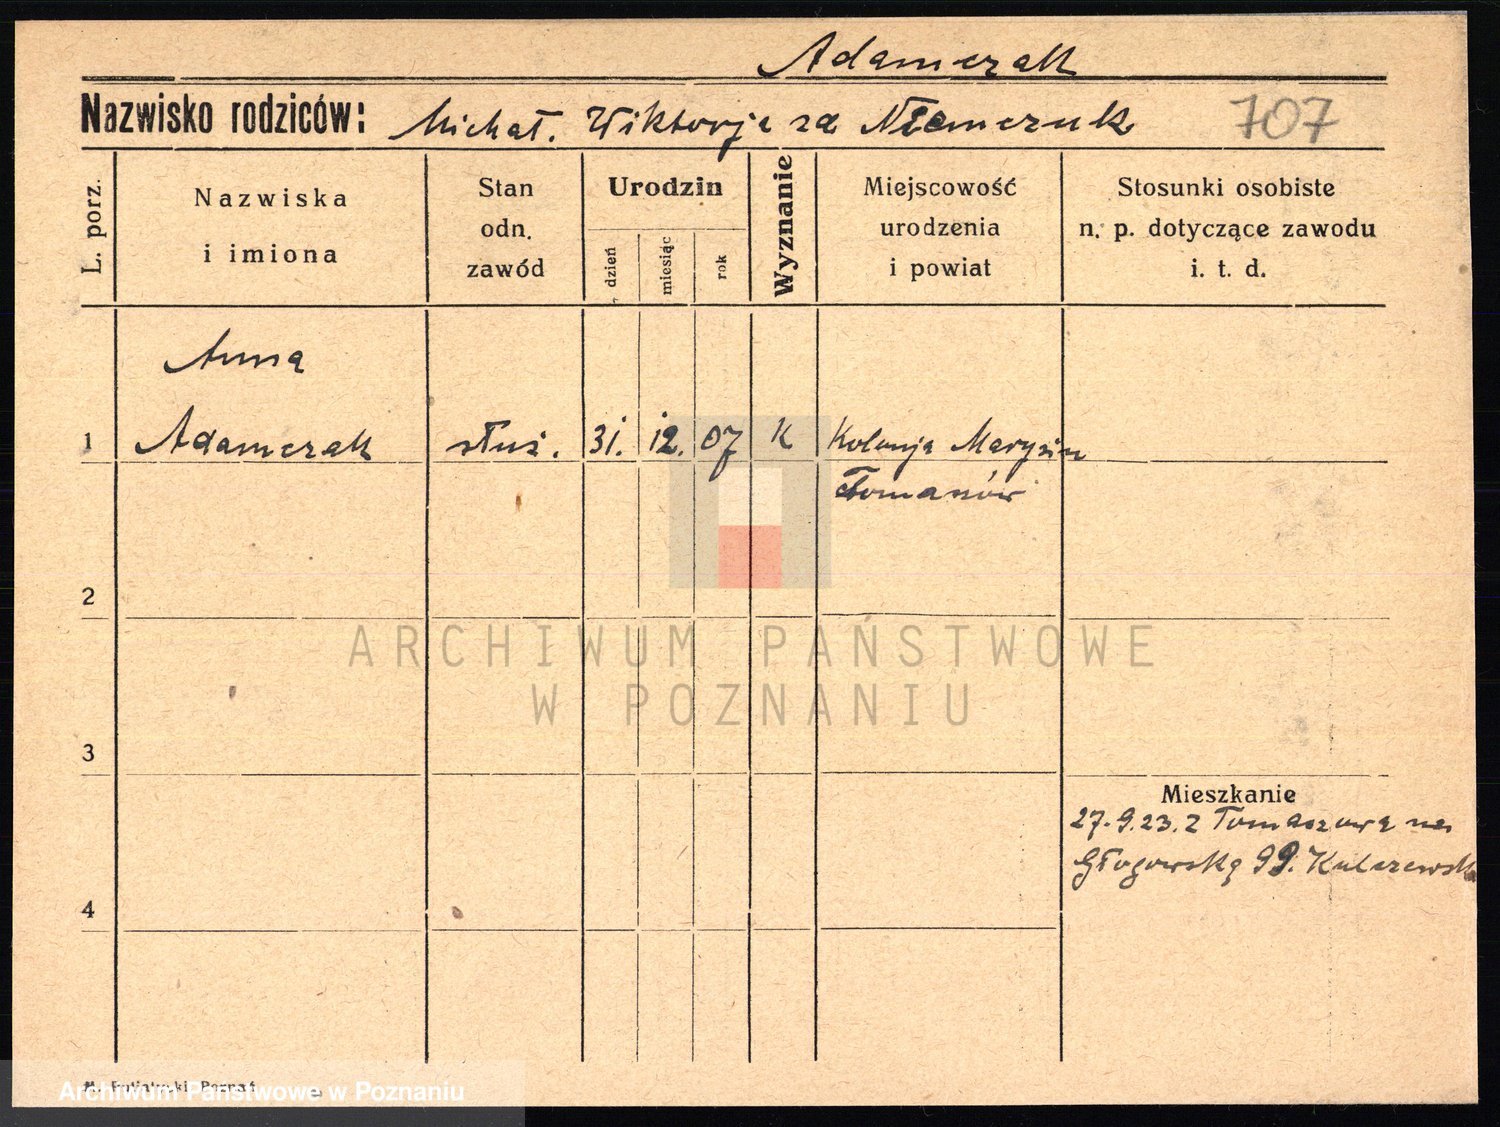 Adamczak
Nazwisko rodziców: Michał. Wiktorja za Niemczuk 707
L. porz.
Nazwiska i imiona
Stan odn. zawód
Urodzin
dzień
miesiąc
rok
Wyznanie
Miejscowość urodzenia i powiat
Stosunki osobiste n. p. dotyczące zawodu i. t. d.
Anna
1 Adamczak służ. 31. 12. 07 K Kolonja Marysin
Tomaszów
2
ARCHIWUM PAŃSTWOWE
W POZNANIU
3
Mieszkanie
27.9.23. z Tomaszowa na
Głogowską 99.
4
Poznań
Archiwum Państwowe w Poznaniu